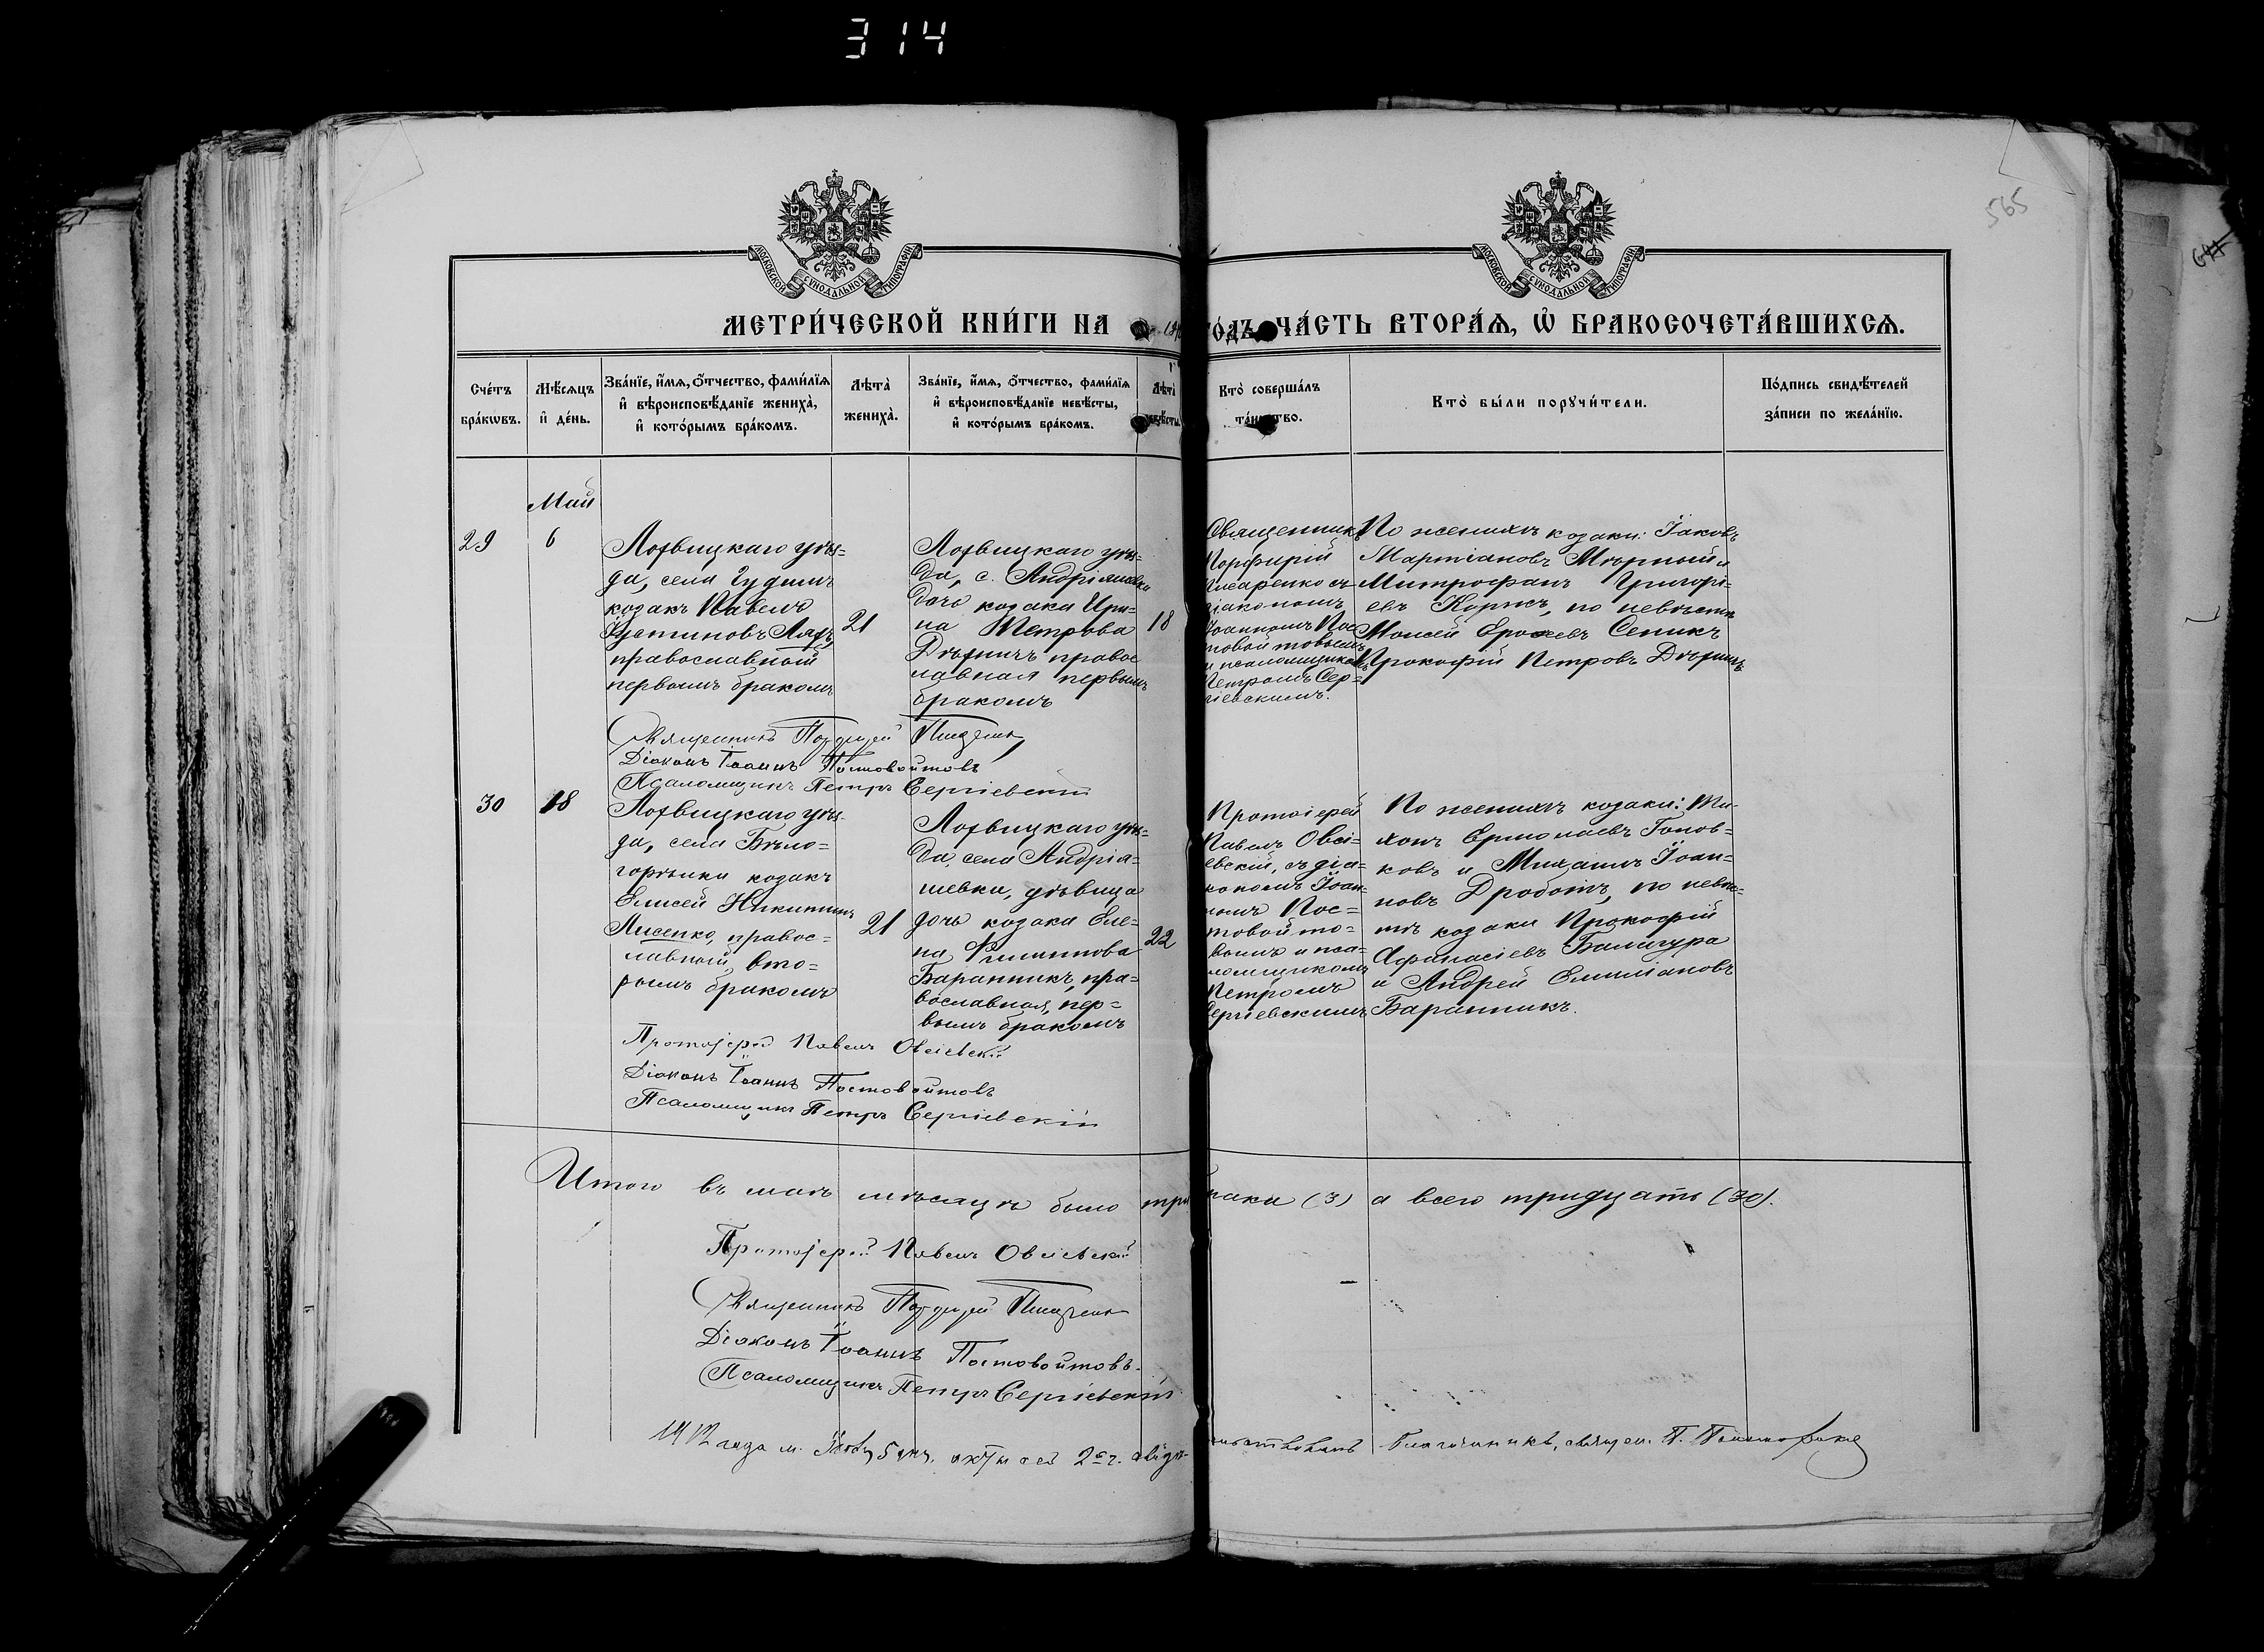 314
565
МОСКОВСКОЙ СѴНОДАЛЬНОЙ ТИПОГРАФІИ
МОСКОВСКОЙ СѴНОДАЛЬНОЙ ТИПОГРАФІИ
МЕТРИ́ЧЕСКОЙ КНИ́ГИ НА
ГО́ДЪ, ЧА́СТЬ ВТОРА́Ѧ, Ѡ҆ БРАКОСОЧЕТА́ВШИХСѦ.
Сче́тъ бра́кѡвъ.
Мѣ́сѧцъ и҆ де́нь.
Зва́нїе, и҆́мѧ, ѻ҆́тчество, фами́лїѧ
и҆ вѣроисповѣ́данїе жениха̀,
и҆ кото́рымъ бра́комъ.
Лѣта̀ жениха̀.
Зва́нїе, и҆́мѧ, ѻ҆́тчество, фами́лїѧ
и҆ вѣроисповѣ́данїе невѣ́сты,
и҆ кото́рымъ бра́комъ.
Лѣта̀
Кто̀ соверша́лъ
Кто̀ бы́ли порꙋчи́тели.
По́дпись свидѣ́телей
за́писи по жела́нїю.
Май
29
6
Лохвицкаго уѣз=
да, села
козакъ Павелъ
Іустиновъ
православный
первымъ бракомъ
21
Лохвицкаго уѣз=
да, с. Андріяшевки
дочь козака Ири=
на Петрова
правос
лавная первымъ
бракомъ
18
Священникъ
Порфирій
Писаренко съ
діакономъ
Іоанномъ Пос
товойтовымъ
и псаломщикомъ
Петромъ Сер=
гіевскимъ.
По женихѣ козаки: Іаковъ
Мартіановъ Мѣрный и
Митрофанъ Григорі=
евъ Коржъ, по невѣстѣ
Моисей Сеникъ
Прокофій Петровъ
Священникъ Порфирій Писаренко
Діаконъ Іоаннъ Постовойтовъ
Псаломщикъ Петръ Сергіевскій
30
18
Лохвицкаго уѣз=
да, села Бѣло=
горѣлки козакъ
Елисей Никитинъ
Лисенко, правос=
лавный, вто=
рымъ бракомъ
21
Лохвицкаго уѣз=
да, села Андрія=
шевки, дѣвица
дочь козака Еле=
на Филиппова
Баранникъ, пра=
вославная, пер=
вымъ бракомъ
22
Протоіерей
Павелъ Овсі=
евскій, съ діа=
кономъ Іоан=
номъ Пос=
товойто=
вымъ и пса=
ломщикомъ
Петромъ
Сергіевскимъ
По женихѣ козаки: Ти=
хонъ Ермолаевъ Голов=
ковъ и Михаилъ Іоан=
новъ Дроботъ, по невѣс=
тѣ козаки Прокофій
Афанасіевъ Балицура
и Андрей Емиліановъ
Баранникъ.
Протоіерей Павелъ Овсіевскій
Діаконъ Іоаннъ Постовойтовъ
Псаломщикъ Петръ Сергіевскій
Итого въ маѣ мѣсяцѣ было три брака (3) а всего тридцать (30).
Протоіерей Павелъ Овсіевскій
Священникъ Порфирій Писаренко
Діаконъ Іоаннъ Постовойтовъ.
Псаломщикъ Петръ Сергіевскій
1912 года м. 5 дня, 2ᵃ ч. Благочинный, священ. П.